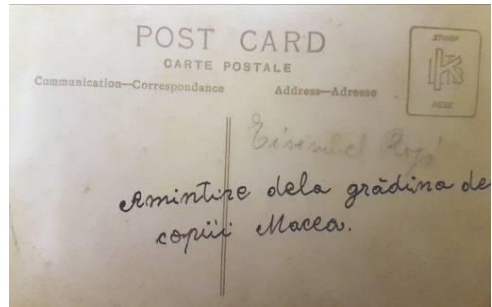 POST CARD
CARTE POSTALE
Communication—Correspondance
Address—Adresse
STAMP
HERE
Amintire dela grădina de
copiii Macea.